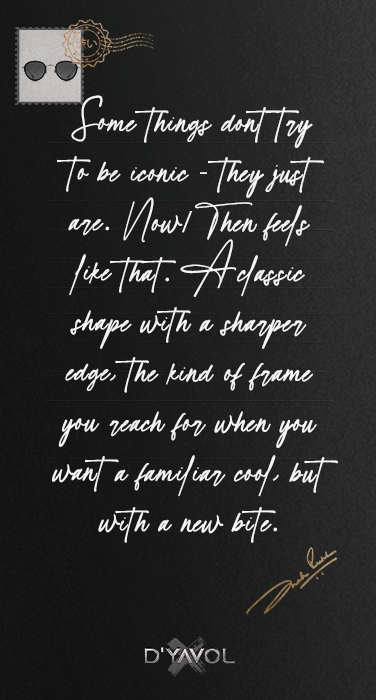 Some things dont try
to be iconic - they just
are. Now/ Then feels
like that. A classic
shape with a sharper
edge, the kind of frame
you reach for when you
want a familiar cool, but
with a new bite.
D'YAVOL
X